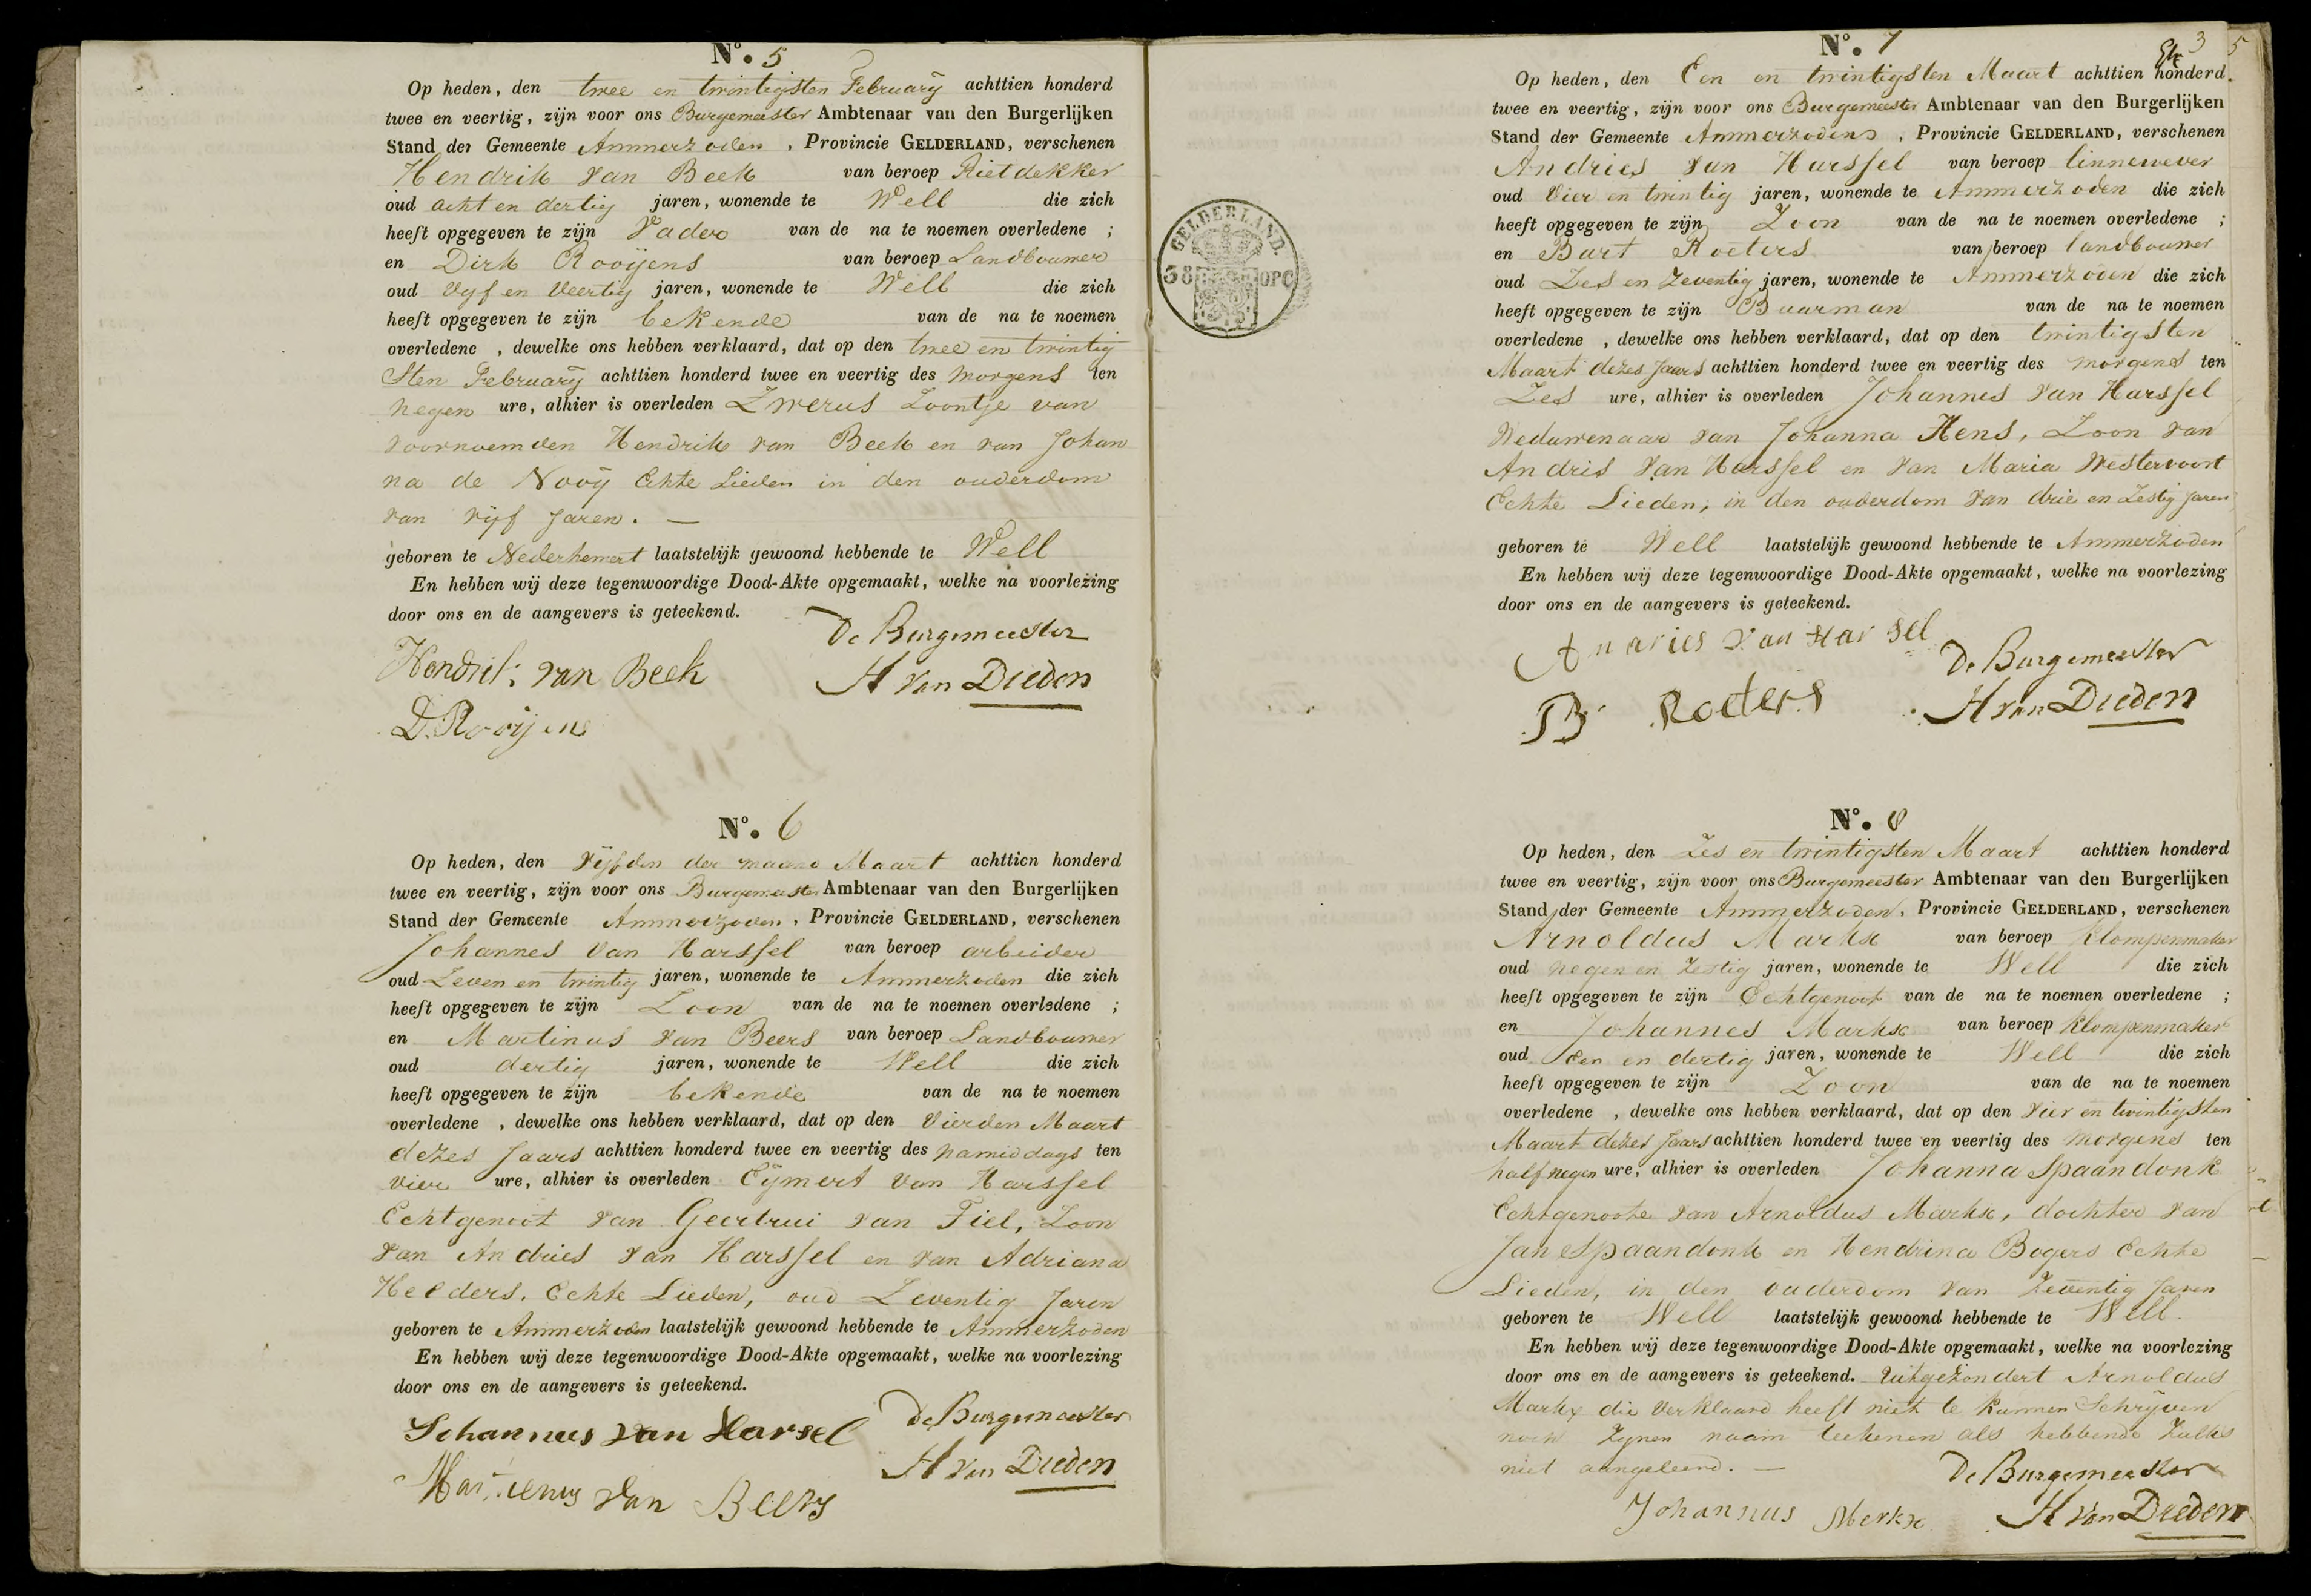 N.º 5
Op heden, den twee en twintigsten February achttien honderd
twee en veertig, zijn voor ons Burgemeester Ambtenaar van den Burgerlijken
Stand der Gemeente Ammerzoden, Provincie GELDERLAND, verschenen
Hendrik van Beek van beroep Rietdekker
oud acht en dertig jaren, wonende te Well die zich
heeft opgegeven te zijn Vader van de na te noemen overledene ;
en Dirk Rooijens van beroep Landbouwer
oud Vyf en Veertig jaren, wonende te Well die zich
heeft opgegeven te zijn bekende van de na te noemen
overledene , dewelke ons hebben verklaard, dat op den twee en twintig
sten February achttien honderd twee en veertig des morgens ten
negen ure, alhier is overleden Zwerus Zoontje van
voornoemden Hendrik van Beek en van Johan
na de Nooÿ Echte Lieden in den ouderdom
van vijf Jaren. —
geboren te Nederhemert laatstelijk gewoond hebbende te Well
En hebben wij deze tegenwoordige Dood-Akte opgemaakt, welke na voorlezing
door ons en de aangevers is geteekend.
De Burgemeester
Hendrik van Beek H van Dieden
D. Rooijens
N.º 6
Op heden, den Vijfden der maand Maart achttien honderd
twee en veertig, zijn voor ons Burgemeester Ambtenaar van den Burgerlijken
Stand der Gemeente Ammerzoden, Provincie GELDERLAND, verschenen
Johannes van Harssel van beroep arbeider
oud Zeven en twintig jaren, wonende te Ammerzoden die zich
heeft opgegeven te zijn Zoon van de na te noemen overledene ;
en Martinus van Beers van beroep Landbouwer
oud dertig jaren, wonende te Well die zich
heeft opgegeven te zijn bekende van de na te noemen
overledene , dewelke ons hebben verklaard, dat op den Vierden Maart
dezes Jaars achttien honderd twee en veertig des namiddags ten
vier ure, alhier is overleden Eijmert van Harssel
Echtgenoot van Geertrui van Tiel, Zoon
van Andries van Harssel en van Adriana
Helders. Echte Lieden, oud Zeventig Jaren
geboren te Ammerzoden laatstelijk gewoond hebbende te Ammerzoden
En hebben wij deze tegenwoordige Dood-Akte opgemaakt, welke na voorlezing
door ons en de aangevers is geteekend.
De Burgemeester
Johannes van Harsel
H van Dieden
Martienus van Beers
GELDERLAND.
38 OPC
3 5
N.º 7
Op heden, den Een en twintigsten Maart achttien honderd
twee en veertig, zijn voor ons Burgemeester Ambtenaar van den Burgerlijken
Stand der Gemeente Ammerzoden, Provincie GELDERLAND, verschenen
Andries van Harssel van beroep linnewever
oud Vier en twintig jaren, wonende te Ammerzoden die zich
heeft opgegeven te zijn Zoon van de na te noemen overledene ;
en Bart Roeters van beroep landbouwer
oud Zes en Zeventig jaren, wonende te Ammerzoden die zich
heeft opgegeven te zijn Buurman van de na te noemen
overledene , dewelke ons hebben verklaard, dat op den twintigsten
Maart dezes Jaars achttien honderd twee en veertig des morgens ten
Zes ure, alhier is overleden Johannes van Harssel
Weduwenaar van Johanna Hens, Zoon van
Andris van Harssel en van Maria Westervoort
Echte Lieden, in den ouderdom van drie en Zestig Jaren
geboren te Well laatstelijk gewoond hebbende te Ammerzoden
En hebben wij deze tegenwoordige Dood-Akte opgemaakt, welke na voorlezing
door ons en de aangevers is geteekend.
Anaries van Harsel
De Burgemeester
B Roeters H van Dieden
N.º 8
Op heden, den Zes en twintigsten Maart achttien honderd
twee en veertig, zijn voor ons Burgemeester Ambtenaar van den Burgerlijken
Stand der Gemeente Ammerzoden, Provincie GELDERLAND, verschenen
Arnoldus Markx van beroep Klompenmaker
oud negen en Zestig jaren, wonende te Well die zich
heeft opgegeven te zijn Echtgenoot van de na te noemen overledene ;
en Johannes Markx van beroep Klompenmaker
oud een en dertig jaren, wonende te Well die zich
heeft opgegeven te zijn Zoon van de na te noemen
overledene , dewelke ons hebben verklaard, dat op den vier en twintigsten
Maart dezes Jaars achttien honderd twee en veertig des morgens ten
half negen ure, alhier is overleden Johanna Spaandonk
Echtgenoote van Arnoldus Markx, dochter van
Jan Spaandonk en Hendrina Bogers Echte
Lieden, in den ouderdom van Zeventig Jaren
geboren te Well laatstelijk gewoond hebbende te Well.
En hebben wij deze tegenwoordige Dood-Akte opgemaakt, welke na voorlezing
door ons en de aangevers is geteekend. Uitgezondert Arnoldus
Markx die Verklaard heeft niet te kunnen Schrijven
noch Zynen naam teekenen als hebbende Zulks
niet aangeleerd. —
De Burgemeester
Johannus Merkx H van Dieden